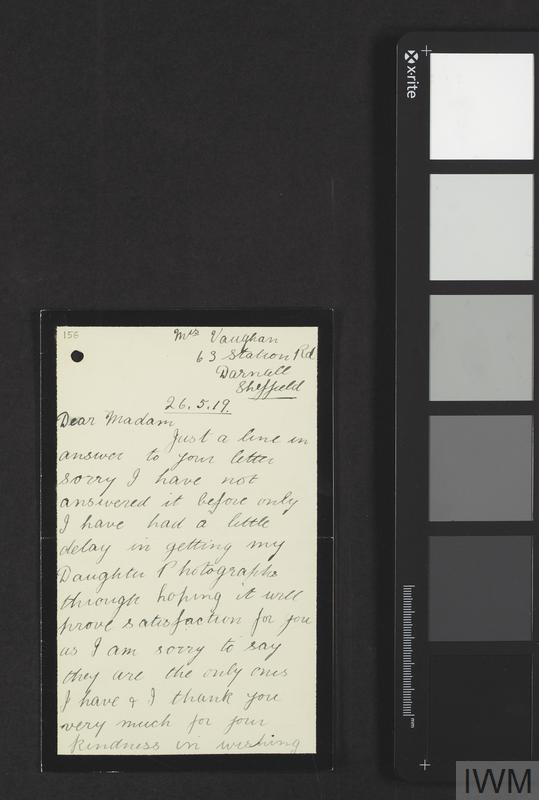 156
Mrs Vaughan
63 Station Rd
Darnall
Sheffield
26.5.19.
Dear Madam
Just a line in
answer to your letter
sorry I have not
answered it before only
I have had a little
delay in getting my
Daughter Photographs
through hoping it will
prove satisfaction for you
as I am sorry to say
they are the only ones
I have & I thank you
very much for your
kindness in wishing
x-rite
mm
IWM